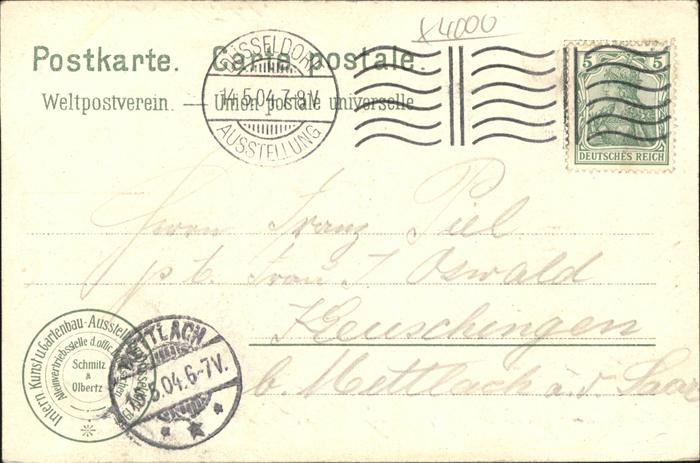 x4000
Postkarte. Carte postale.
Weltpostverein. — Union postale universelle
DÜSSELDORF
14.5.04.7-8V.
AUSSTELLUNG
5 5
DEUTSCHES REICH
Herrn Franz Piel
p. b. Frau J Oswald
Keuschingen
b. Mettlach a. d. Saar
Intern. Kunst u. Gartenbau-Ausstell
Alleinvertriebsstelle d. offic.
Schmitz
&
Olbertz
METTLACH
5.04.6-7V.